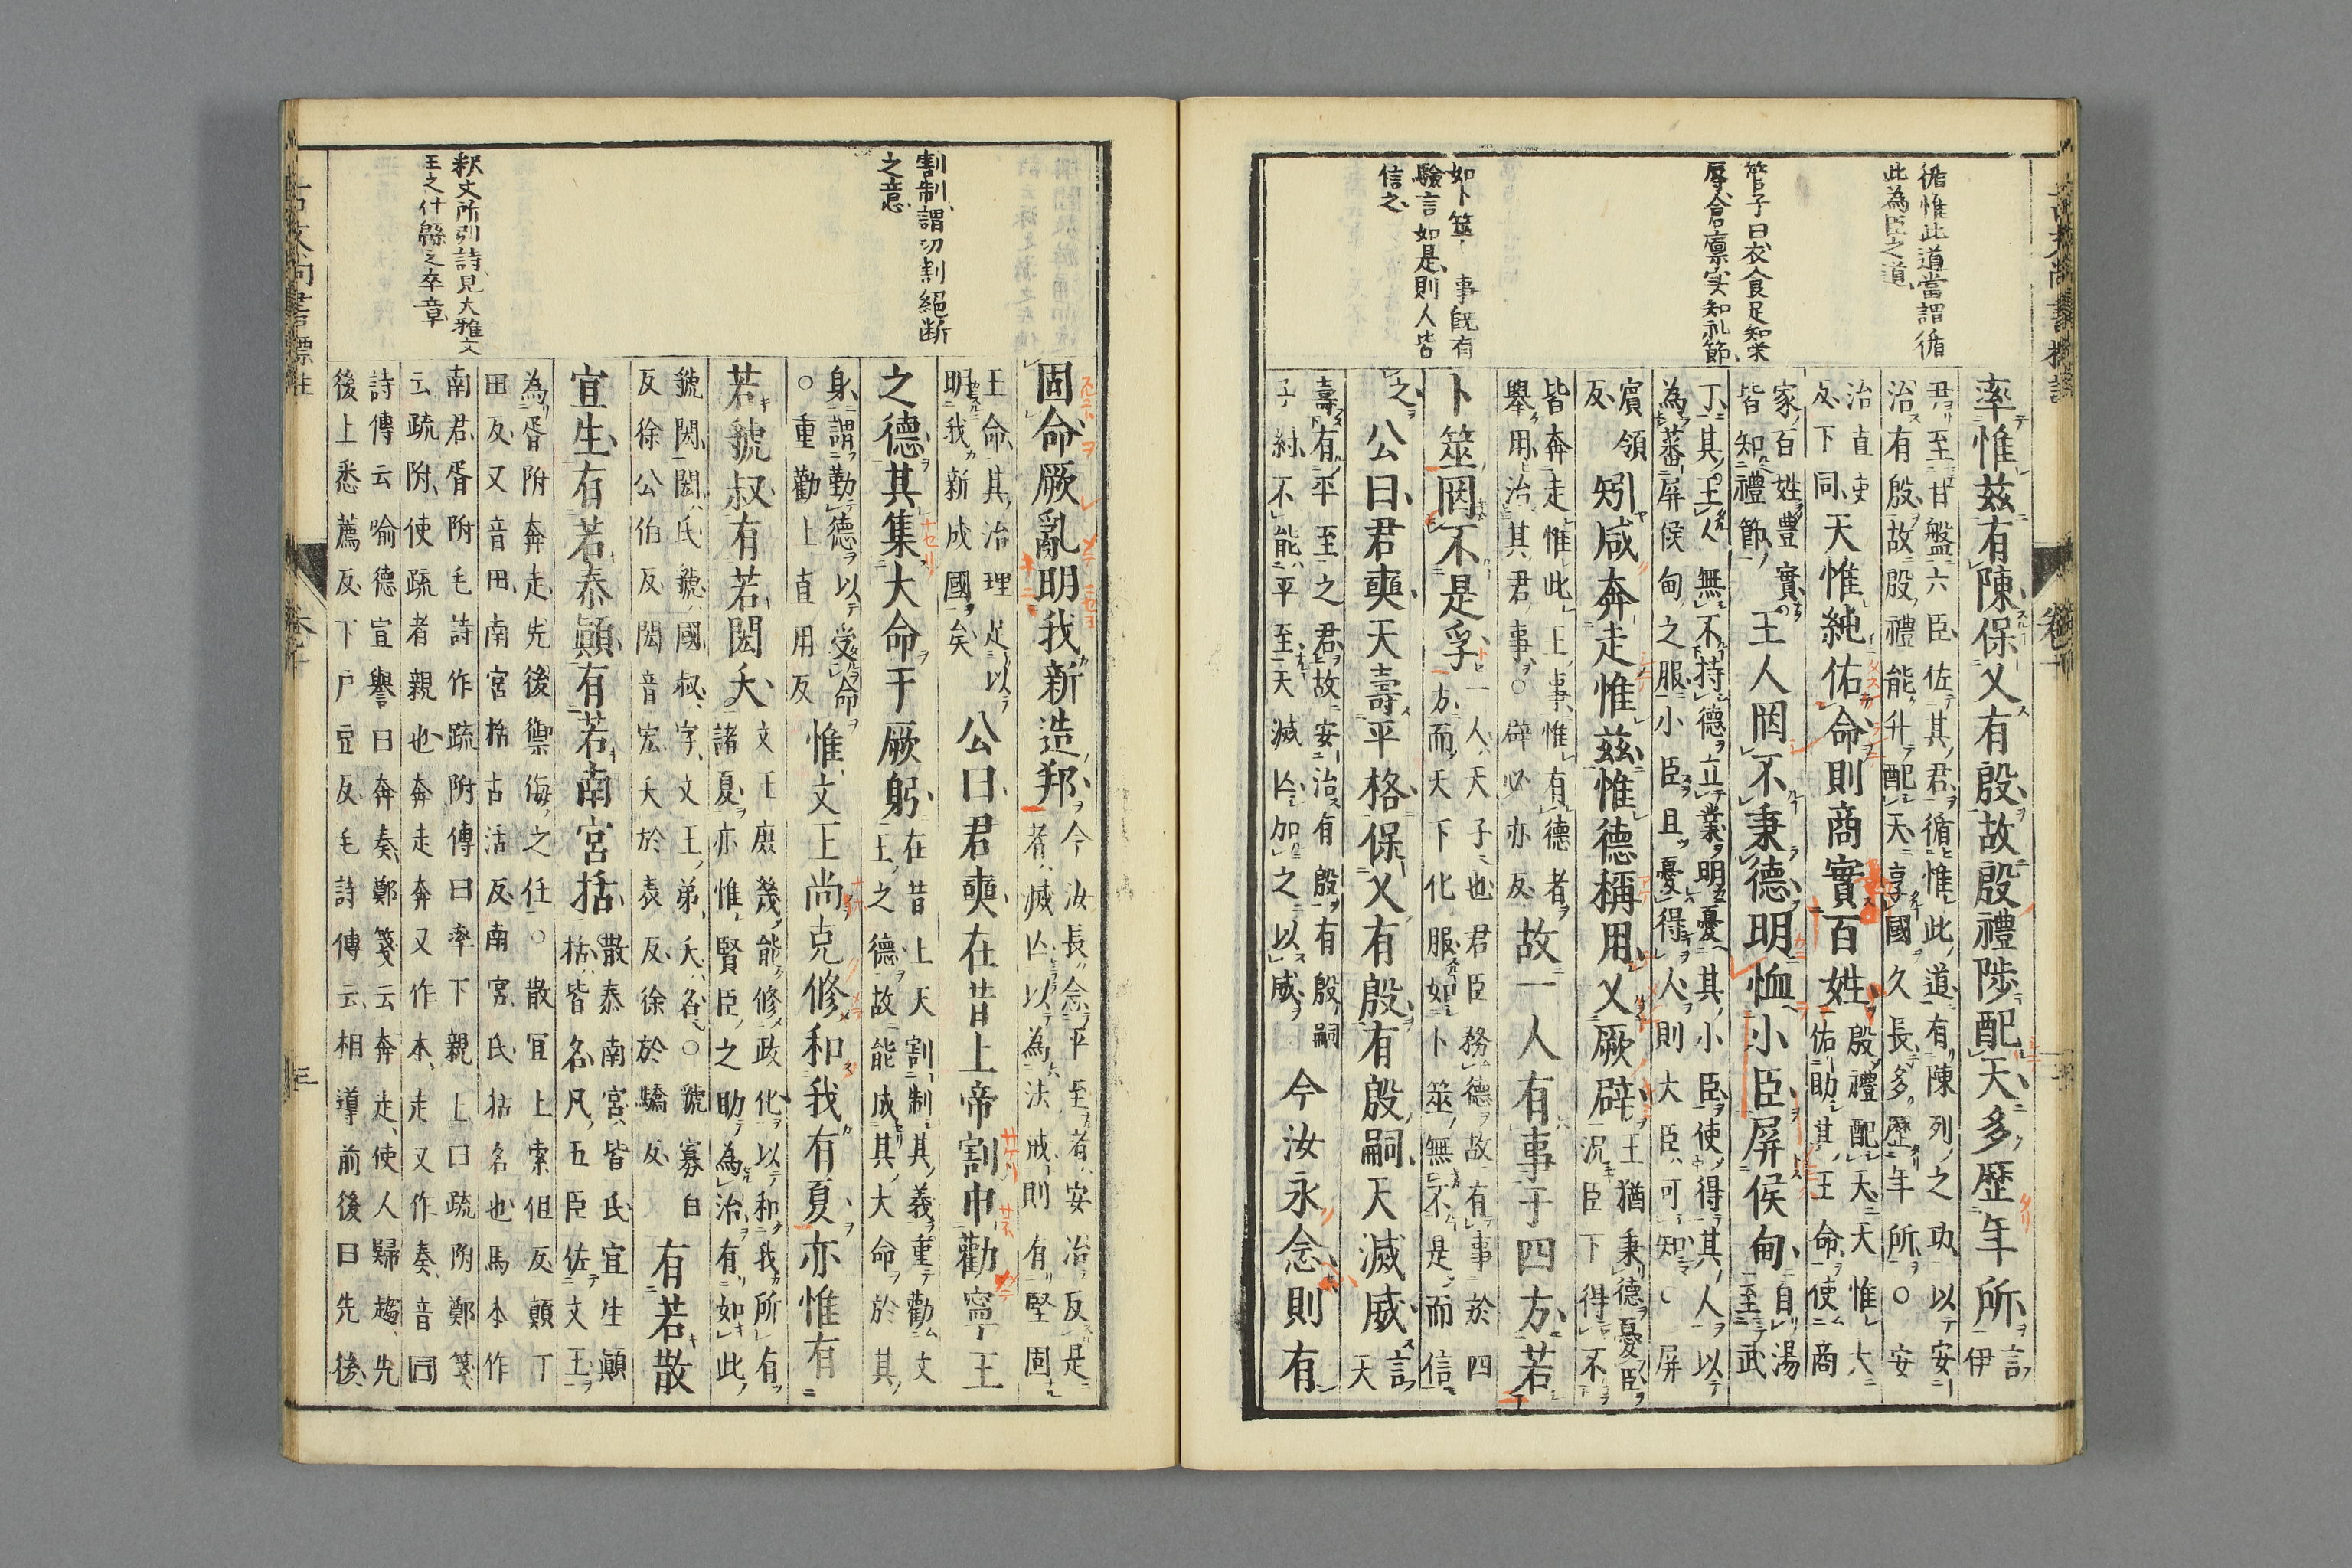 循惟此道當謂循
此為臣之道
管子曰衣食足知栄
辱倉廩実知礼節
如卜筮 事既有
驗言如是則人皆
信之
率惟茲有陳保乂有殷故殷禮陟配天多歷年所言
伊
君至甘盤六臣佐其君循惟此道有陳列之功以安
治有殷故殷禮能升配天享國久長多歷年所○安
治直吏
反下同
天惟純佑命則商實百姓
殷禮配天天惟大
佑助其王命使商
家百姓豐實
皆知禮節
王人罔不秉德明恤小臣屏侯甸
自湯
至武
丁其王人無不持德立業明憂其小臣使得其人以
為蕃屏侯甸之服小臣且憂得人則大臣可知○屏
賓領
反
矧咸奔走惟茲惟德稱用乂厥辟
王猶秉德憂臣
況臣下得不
皆奔走惟此王事惟有德者
舉用治其君事○辟必亦反
故一人有事于四方若
卜筮罔不是孚
一人天子也君臣務德故有事於四
方而天下化服如卜筮無不是而信
之
公曰君奭天壽平格保乂有殷有殷嗣天滅威
言
天
壽有平至之君故安治有殷有殷嗣
子紂不能平至天滅亡加之以威
今汝永念則有
割制謂切割絕断
之意
釈文所引詩見大雅文
王之什緜之卒章
固命厥亂明我新造邦
今汝長念平至者安治反是
者滅亡以為法戒則有堅固
王命其治理足以
明我新成國矣
公曰君奭在昔上帝割申勸寧王
之德其集大命于厥躬
在昔上天割制其義重勸文
王之德故能成其大命於其
身謂勤德以受命
○重勸上直用反
惟文王尚克修和我有夏亦惟有
若虢叔有若閎夭
文王庶幾能修政化以和我所有
諸夏亦惟賢臣之助為治有如此
虢閎閎氏虢國叔字文王弟夭名○虢寡白
反徐公伯反閎音宏夭於表反徐於驕反
有若散
宜生有若泰顛有若南宮括
散泰南宮皆氏宜生顛
括皆名凡五臣佐文王
為胥附奔走先後禦侮之任○散宜上索但反顛丁
田反又音田南宮括古活反南宮氏括名也馬本作
南君胥附毛詩作疏附傳曰率下親上曰疏附鄭箋
云疏附使疏者親也奔走奔又作本走又作奏音同
詩傳云喻德宣譽曰奔奏鄭箋云奔走使人歸趨先
後上悉薦反下戶豆反毛詩傳云相導前後曰先後